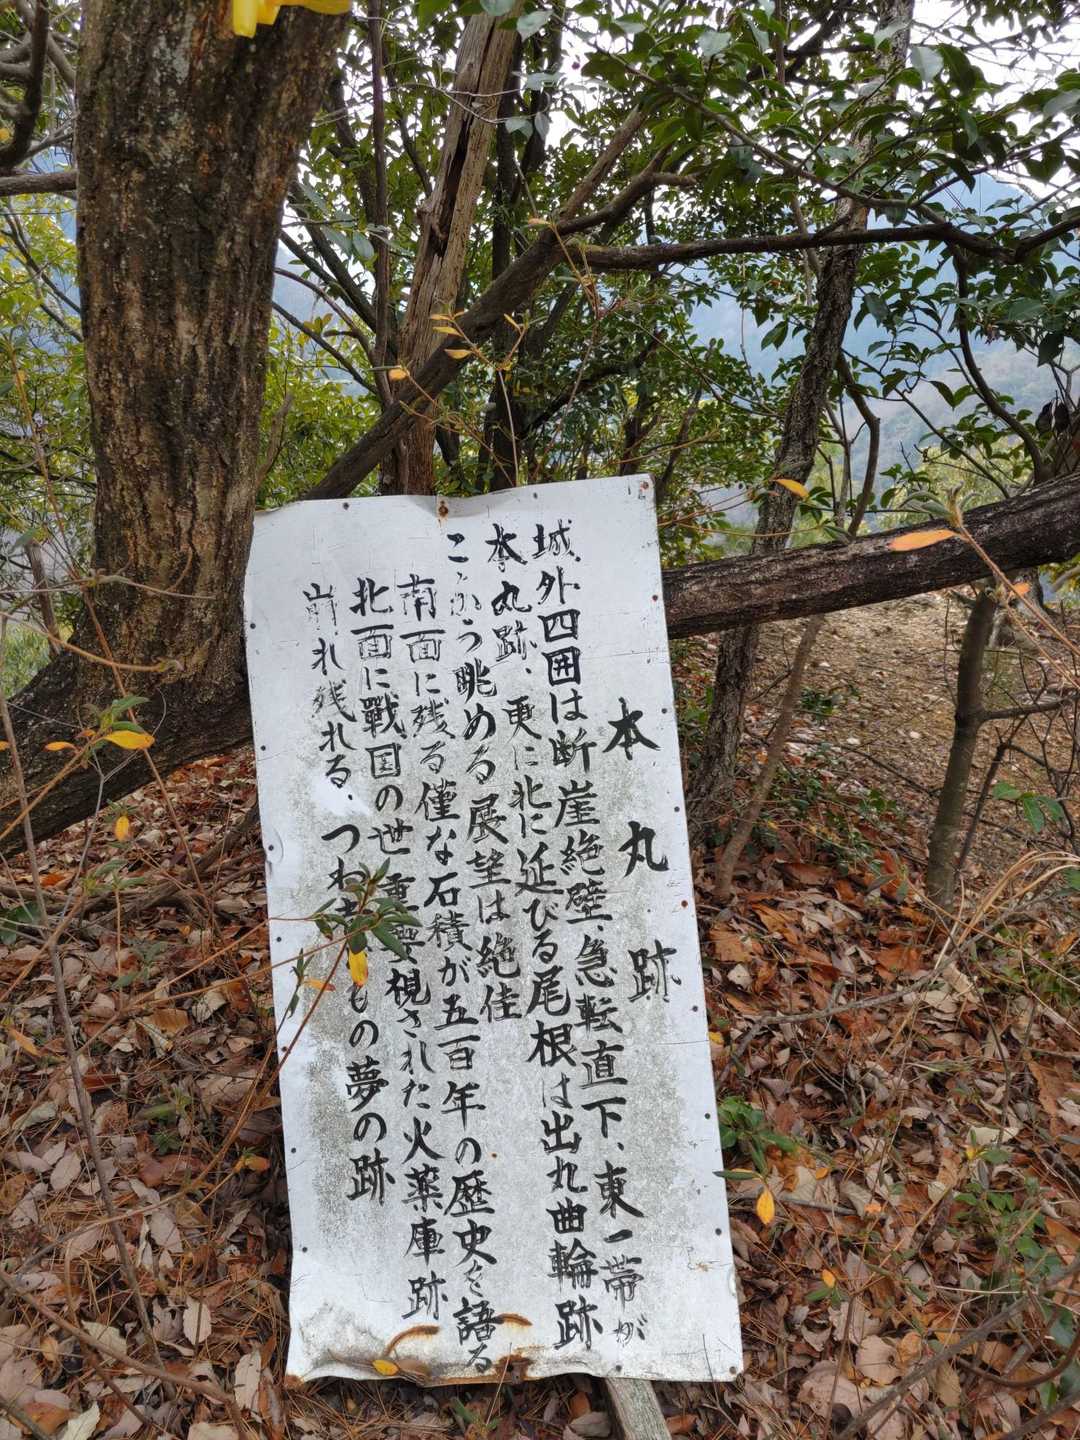 本丸跡
城外四囲は断崖絶壁、急転直下、東一帯が
本丸跡、更に北に延びる尾根は出丸曲輪跡
こゝから眺める展望は絶佳
南面に残る僅な石積が五百年の歴史を語る
北面に戰国の世重要視された火薬庫跡
崩れ残れる、つわものの夢の跡